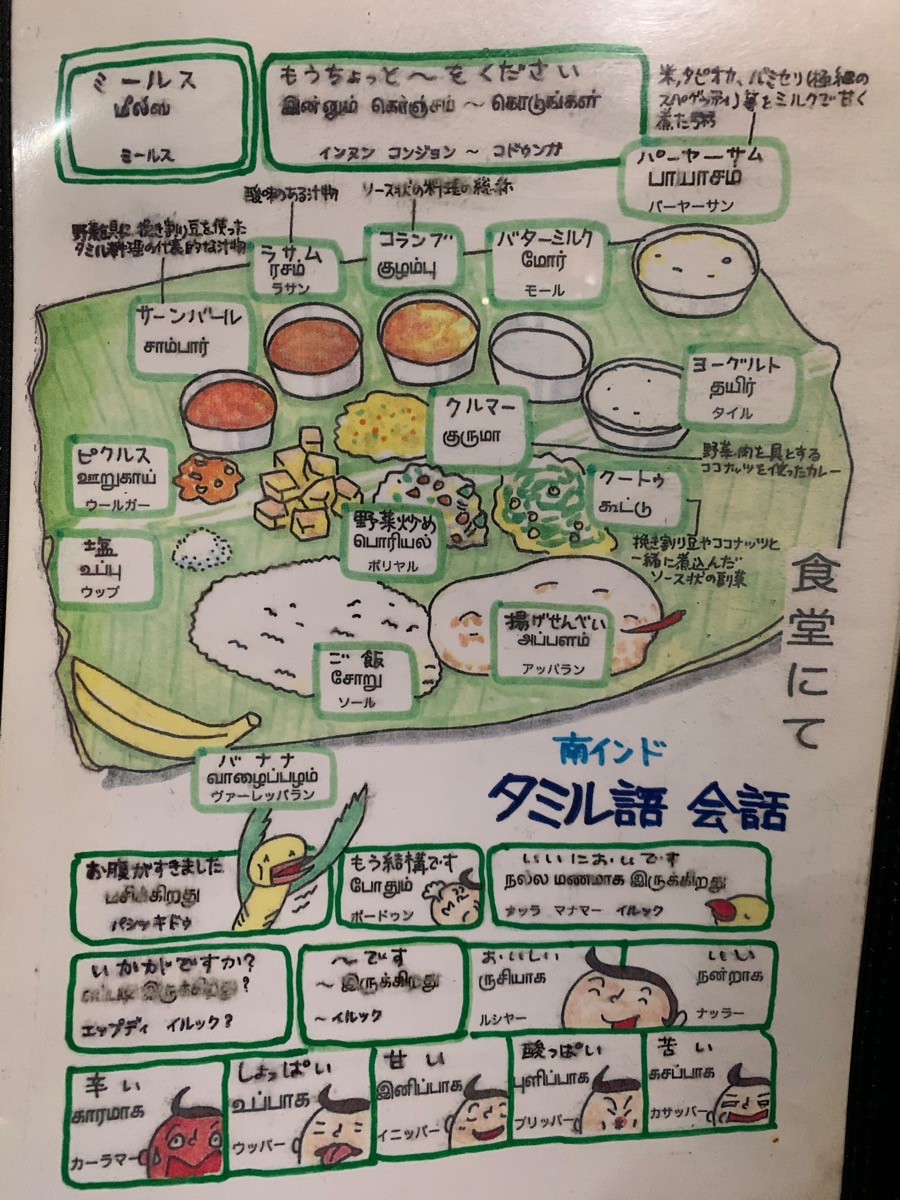 ミールス
மீல்ஸ்
ミールス
もうちょっと〜をください
இன்னும் கொஞ்சம் ~ கொடுங்கள்
インヌン コンジョン 〜 コドゥンガ
米,タピオカ、バミセリ(極細の
スパゲッティ)等をミルクで甘く
煮た粥
パーヤーサム
பாயாசம்
パーヤーサン
酸味のある汁物
ソース状の料理の総称
野菜を具に、挽き割り豆を使った
タミル料理の代表的な汁物
ラサム
ரசம்
ラサン
コランブ
குழம்பு
バターミルク
மோர்
モール
サーンバール
சாம்பார்
ヨーグルト
தயிர்
タイル
クルマー
குருமா
野菜・肉を具とする
ココナッツを使ったカレー
ピクルス
ஊறுகாய்
ウールガー
クートゥ
கூட்டு
挽き割り豆やココナッツと
一緒に煮込んだ
ソース状の副菜
野菜炒め
பொரியல்
ポリヤル
塩
உப்பு
ウップ
揚げせんべい
அப்பளம்
アッパラン
ご飯
சோறு
ソール
食堂にて
バナナ
வாழைப்பழம்
ヴァーレッパラン
南インド
タミル語 会話
お腹がすきました
பசிக்கிறது
パシッキドゥ
もう結構です
போதும்
ポードゥン
いいにおいです
நல்ல மணமாக இருக்கிறது
ナッラ マナマー イルック
いかがですか?
இருக்கிறது?
エップディ イルック?
〜です
~ இருக்கிறது
〜イルック
おいしい
ருசியாக
ルシヤー
いい
நன்றாக
ナッラー
辛い
காரமாக
カーラマー
しょっぱい
உப்பாக
ウッパー
甘い
இனிப்பாக
イニッパー
酸っぱい
புளிப்பாக
プリッパー
苦い
கசப்பாக
カサッパー